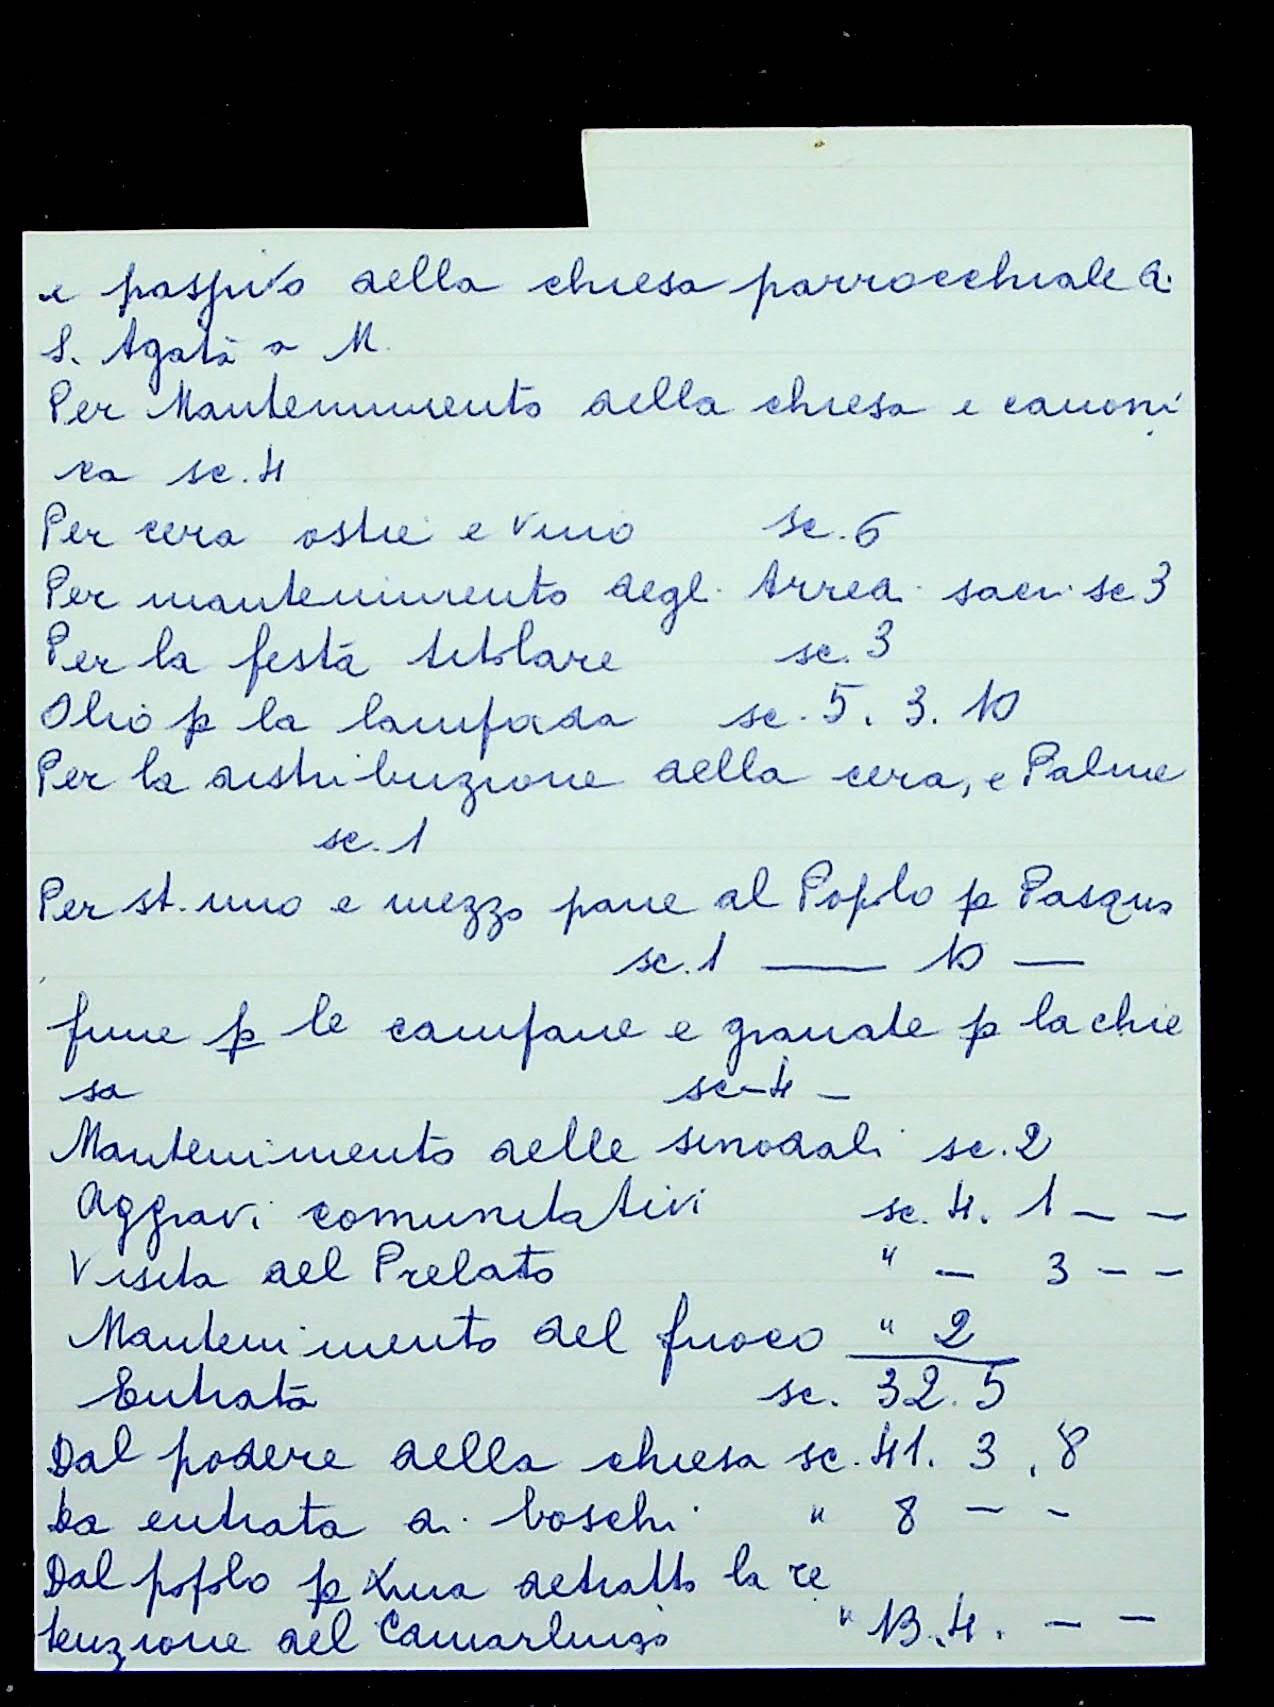 e passivo della chiesa parrocchiale di
S. Agata a M.
Per Mantenimento della chiesa e canoni
ca sc. 4
Per cera ostie e vino sc. 6
Per mantenimento degli Arredi sacri sc 3
Per la festa titolare sc. 3
Olio p la lampada sc. 5. 3. 10
Per la distribuzione della cera, e Palme
sc. 1
Per st. uno e mezzo pane al Popolo p Pasqua
sc. 1 — 10 —
fune p le campane e granate p la chie
sa sc - 4 -
Mantenimento delle sinodali sc. 2
Aggravi comunitativi sc. 4. 1 - -
Visita del Prelato " - 3 - -
Mantenimento del fuoco " 2
Entrata sc. 32. 5
Dal podere della chiesa sc. 41. 3. 8
Da entrata di boschi " 8 - -
Dal popolo p detratto la re
tenzione del Camarlingo " 13. 4. - -